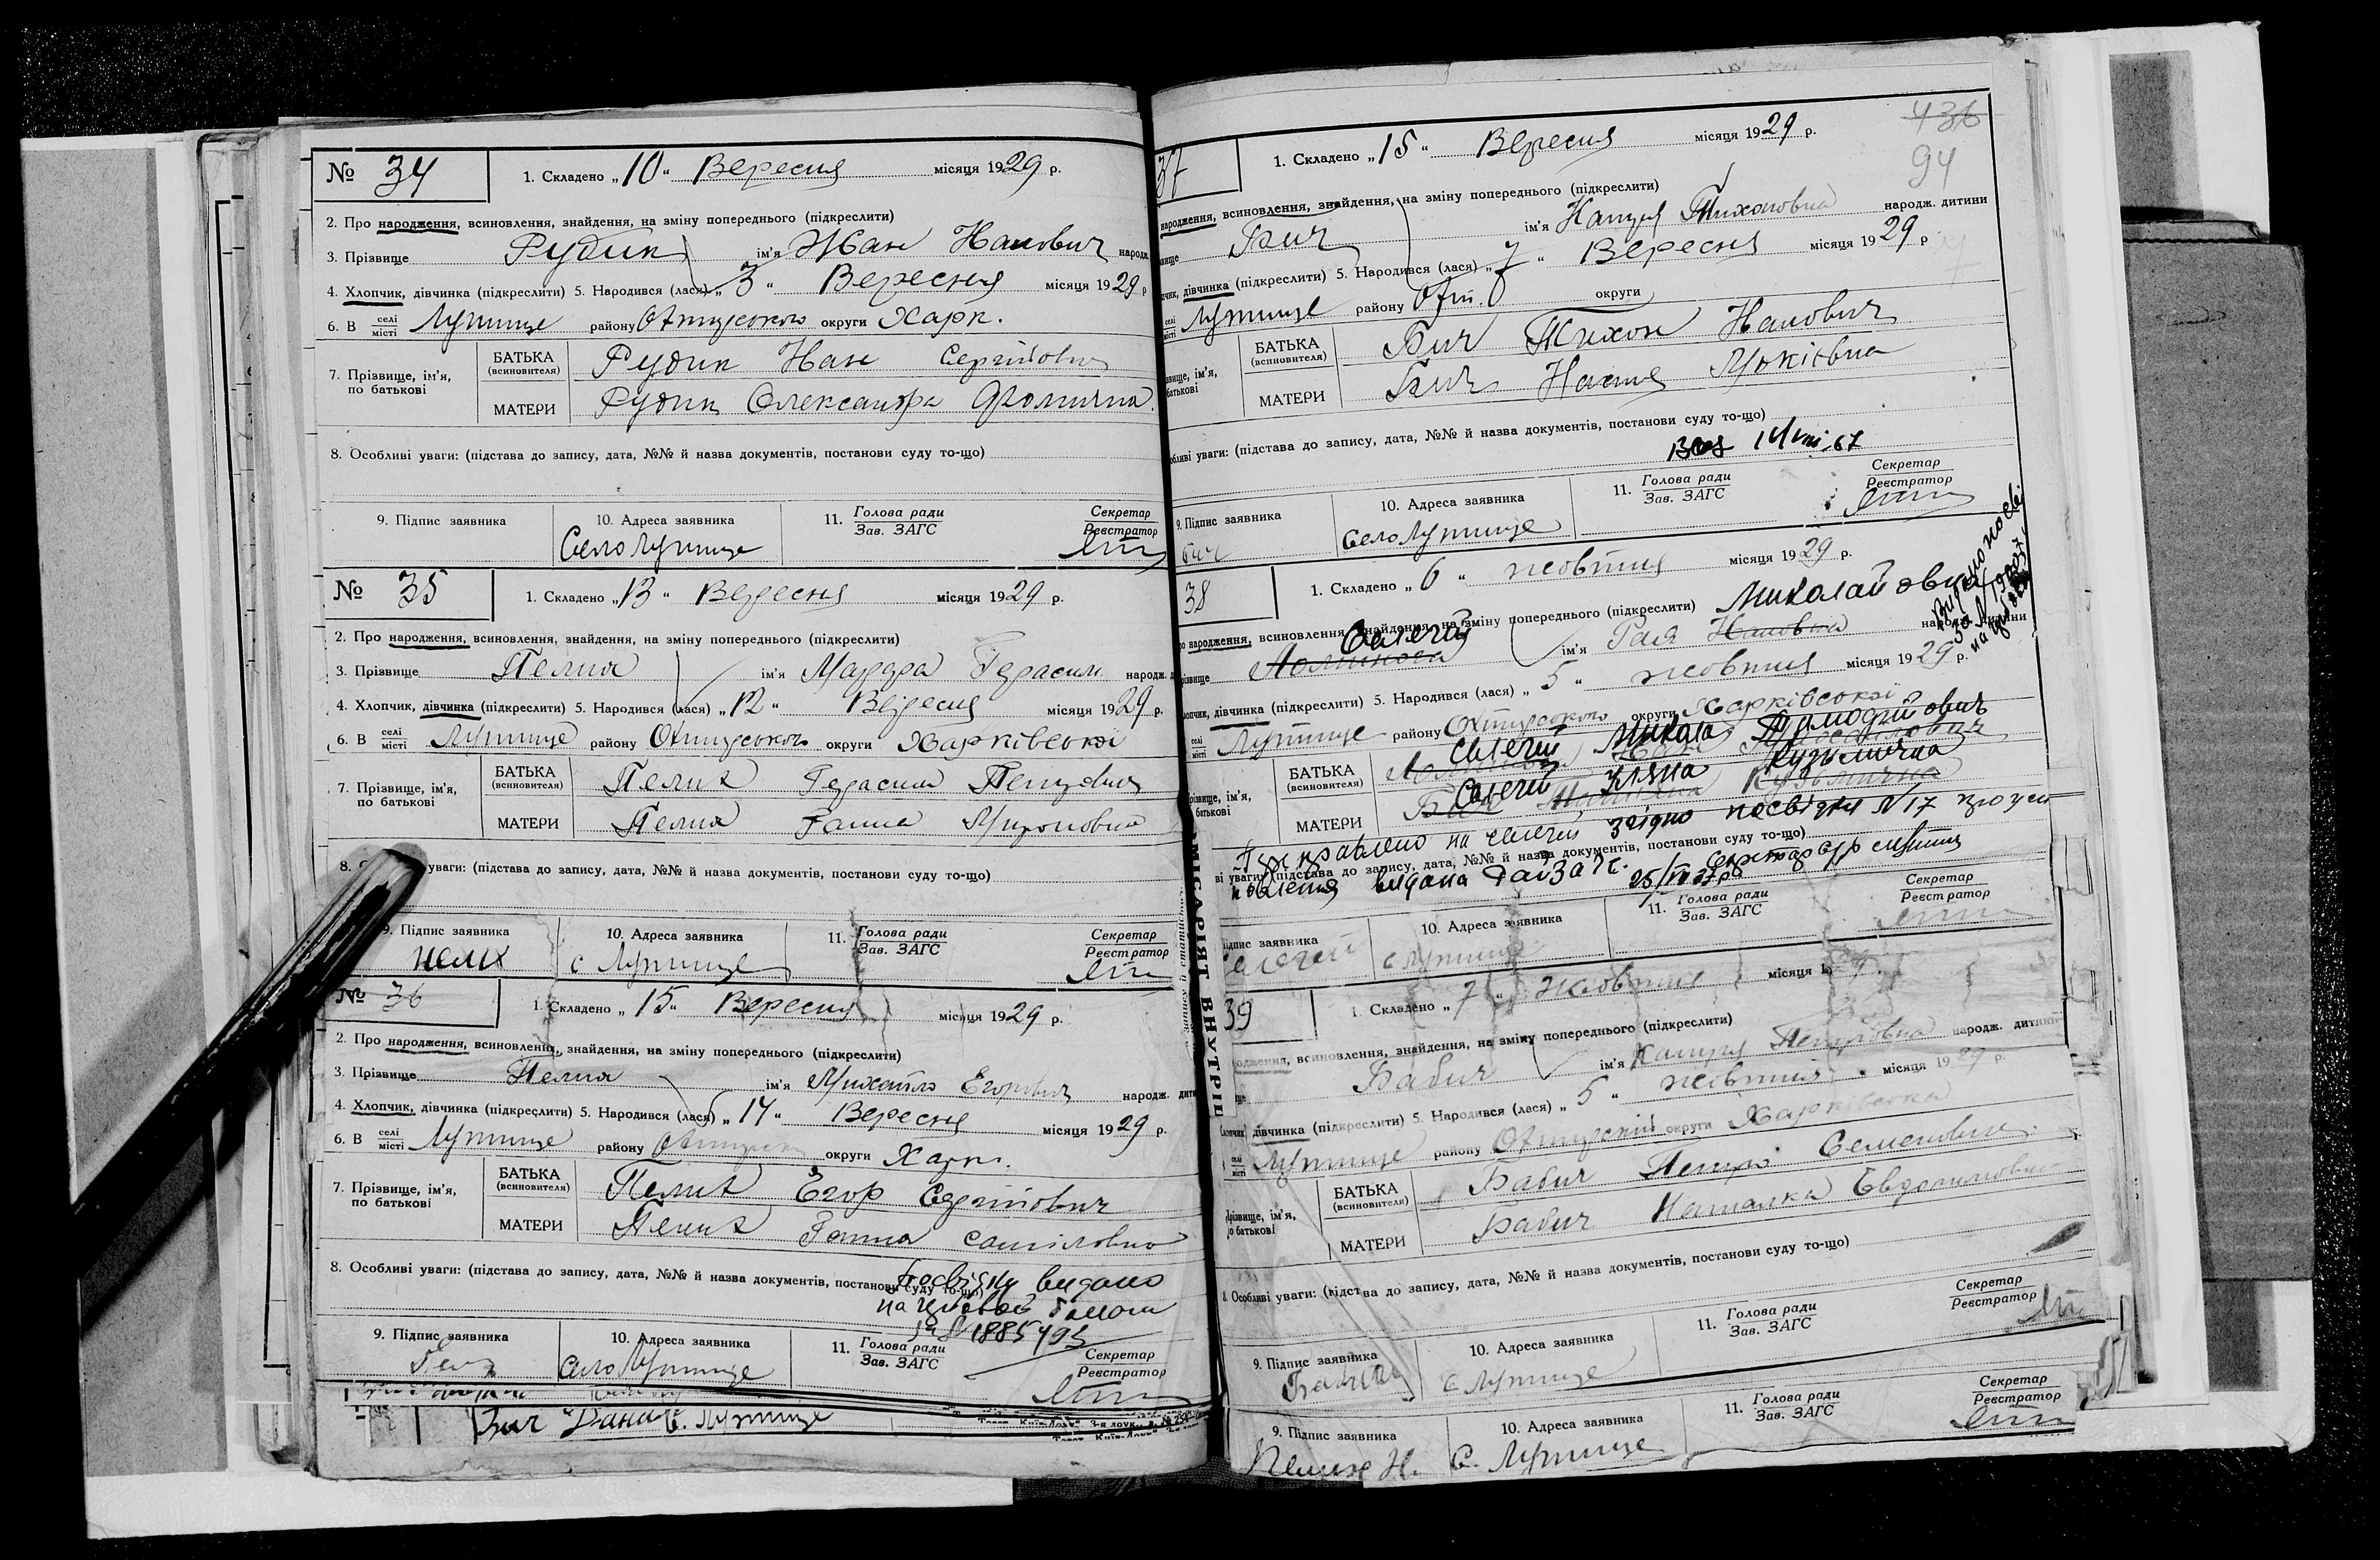 № 34
1. Складено „10“ Вересня місяця 1929 р.
2. Про народження, всиновлення, знайдення, на зміну попереднього (підкреслити)
3. Прізвище Рудик ім'я Иван Иванович народж.
4. Хлопчик, дівчинка (підкреслити) 5. Народився (лася) „3“ Вересня місяця 1929 р
6. В селі місті Лутище району Охтирського округи Харк.
7. Прізвище, ім'я, по батькові
БАТЬКА (всиновителя) Рудик Иван Сергійович
МАТЕРИ Рудик Олександра Фомична
8. Особливі уваги: (підстава до запису, дата, №№ й назва документів, постанови суду то-що)
9. Підпис заявника 10. Адреса заявника 11. Голова ради Зав. ЗАГС Секретар Реєстратор
Село Лутище
№ 35
1. Складено „13“ Вересня місяця 1929 р.
2. Про народження, всиновлення, знайдення, на зміну попереднього (підкреслити)
3. Прізвище Пелих ім'я Герасим. народж.
4. Хлопчик, дівчинка (підкреслити) 5. Народився (лася) „12“ Вересня місяця 1929 р.
6. В селі місті Лутище району Охтирського округи Харківської
7. Прізвище, ім'я, по батькові
БАТЬКА (всиновителя) Пелих Герасим Петрович
МАТЕРИ Пелих Ганна Мироновна
8. уваги: (підстава до запису, дата, №№ й назва документів, постанови суду то-що)
9. Підпис заявника 10. Адреса заявника 11. Голова ради Зав. ЗАГС Секретар Реєстратор
пелих с Лутище
№ 36
1. Складено „15“ Вересня місяця 1929 р.
2. Про народження, всиновлення, знайдення, на зміну попереднього (підкреслити)
3. Прізвище Пелих ім'я Михайло Егорович народж. дити
4. Хлопчик, дівчинка (підкреслити) 5. Народився (лася) „14“ Вересня місяця 1929 р.
6. В селі місті Лутище району округи Харк.
7. Прізвище, ім'я, по батькові
БАТЬКА (всиновителя) Пелих Егор Сергійович
МАТЕРИ Пелих Ганна
8. Особливі уваги: (підстава до запису, дата, №№ й назва документів, постанови суду то-що)
Посвідку видано
на
за № 1885495
9. Підпис заявника 10. Адреса заявника 11. Голова ради Зав. ЗАГС Секретар Реєстратор
село Лутище
Данило с. Лутище
436
94
37
1. Складено „15“ Вересня місяця 1929 р.
народження, всиновлення, знайдення, на зміну попереднього (підкреслити)
Бич ім'я Тихоновна народж. дитини
дівчинка (підкреслити) 5. Народився (лася) „7“ Вересня місяця 1929 р
Лутище району Охт. округи
БАТЬКА (всиновителя) Бич Тихон Иванович
МАТЕРИ Бич
уваги: (підстава до запису, дата, №№ й назва документів, постанови суду то-що)
14/VIII-67
9. Підпис заявника 10. Адреса заявника 11. Голова ради Зав. ЗАГС Секретар Реєстратор
Бич село Лутище
38
1. Складено „6“ жовтня місяця 1929 р.
народження, всиновлення, знайдення, на зміну попереднього (підкреслити) Миколайовна
Селегей ім'я Галя Ивановна
дівчинка (підкреслити) 5. Народився (лася) „5“ жовтня місяця 1929 р.
Лутище району Охтирського округи Харківської
БАТЬКА (всиновителя) Селегей Микола Тимофійович
МАТЕРИ Селегей Уляна Кузьмична
Переправлено на селегей згідно посвідки №17 про
уваги: (підстава до запису, дата, №№ й назва документів, постанови суду то-що)
видана РайЗАГС. 25/
Підпис заявника 10. Адреса заявника 11. Голова ради Зав. ЗАГС Секретар Реєстратор
с Лутище
39
1. Складено „7“ жовтня місяця
народження, всиновлення, знайдення, на зміну попереднього (підкреслити)
Бабич ім'я Петрівна народж. дитини
дівчинка (підкреслити) 5. Народився (лася) „5“ жовтня місяця 1929 р.
Лутище району Охтирський округи Харківська
БАТЬКА (всиновителя) Бабич Петро Семенович
МАТЕРИ Бабич Наталка Евдокимовна
8. Особливі уваги: (підстава до запису, дата, №№ й назва документів, постанови суду то-що)
9. Підпис заявника 10. Адреса заявника 11. Голова ради Зав. ЗАГС Секретар Реєстратор
с Лутище
9. Підпис заявника 10. Адреса заявника 11. Голова ради Зав. ЗАГС Секретар Реєстратор
Пелих И. С. Лутище